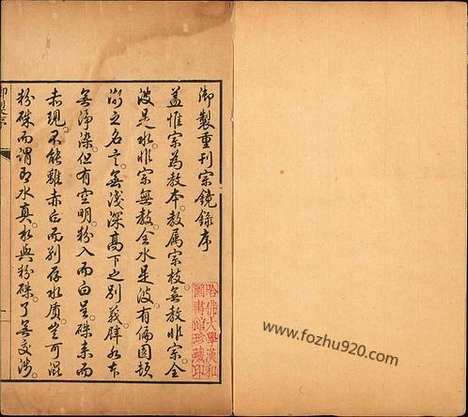 御製重刊宗鏡錄序
蓋惟宗為教本教屬宗枝無教非宗全
波是水非宗無教全水是波有偏圓頓
漸之名言無淺深高下之別義辟水本
無淨染但有空明粉入而白呈硃來而
赤現不能離赤白而別存水質豈可混
粉硃而謂即水真水與粉硃了無交涉
御製序
哈佛大學漢和
圖書館珍藏印
www.fozhu920.com